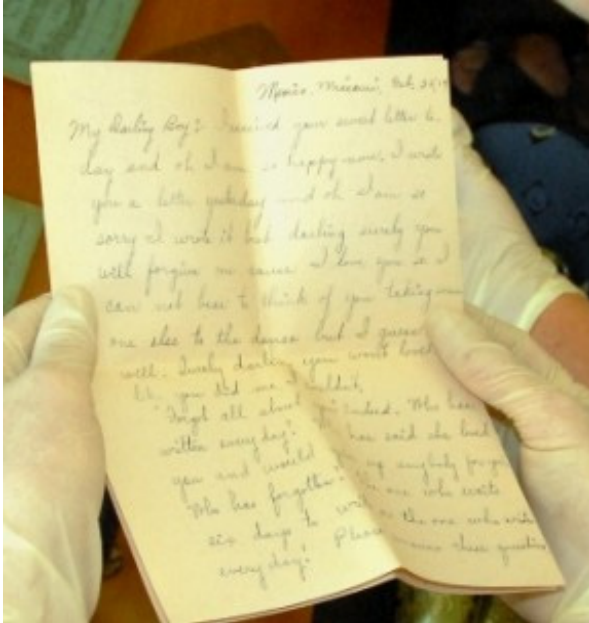 Mexico, Missouri, Feb.
My Darling Boy: I received your sweet letter to
day and oh I am so happy now. I wrote
you a letter yesterday and oh I am so
sorry I wrote it but darling surely you
will forgive me cause I love you so I
can not bear to think of you taking
one else to the dance but I guess
well. Surely darling you won't
like you did me I couldn't
"Forgot all about indeed. Who has
written every day? has said she loved
you and would up anybody
Who has forgotten? one who waits
six days to write or the one who writes
every day? Please answer these questions